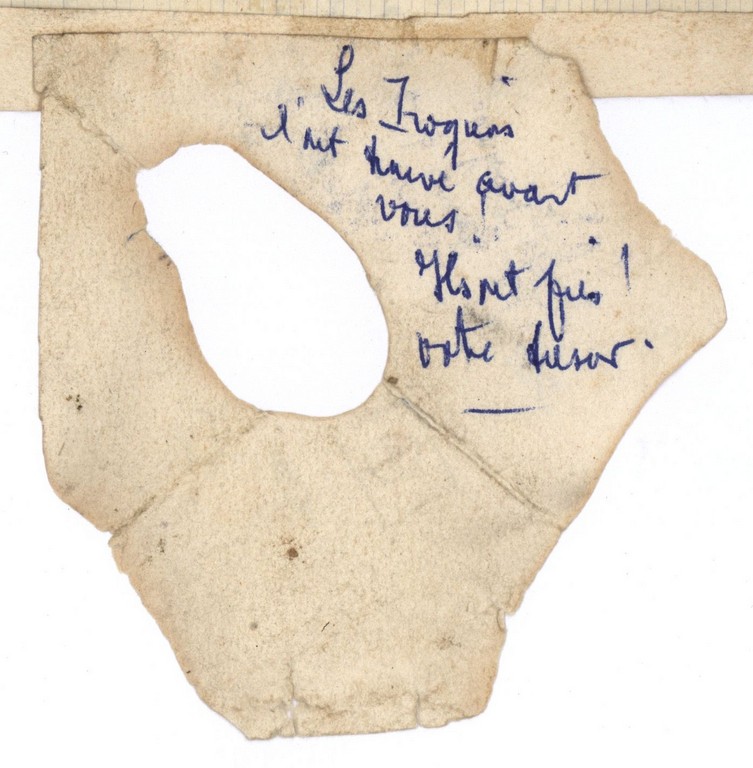 Les Iroquois
l'ont trouvé avant
vous.
Ils ont pris !
votre trésor.